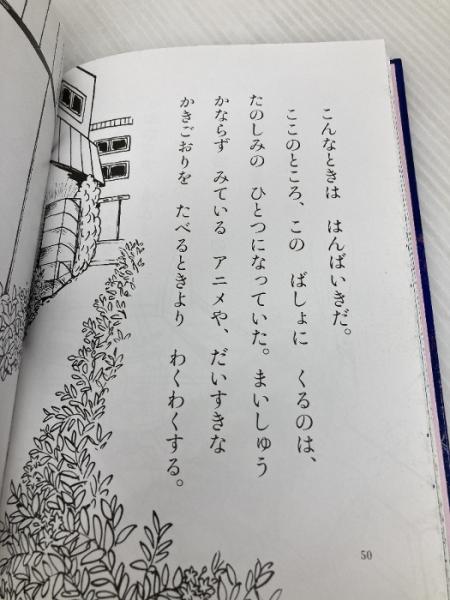 こんなときは　はんばいきだ。
ここのところ、この　ばしょに　くるのは、
たのしみの　ひとつになっていた。まいしゅう
かならず　みている　アニメや、だいすきな
かきごおりを　たべるときより　わくわくする。
50